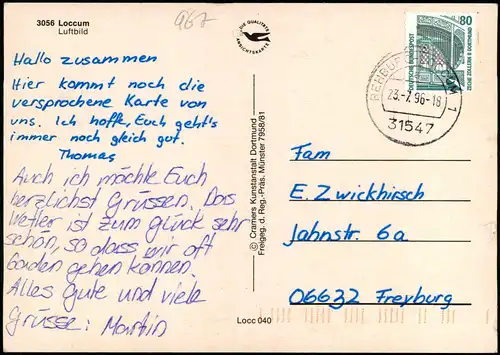 3056 Loccum
Luftbild
967
Hallo zusammen
Hier kommt noch die
versprochene Karte von
uns. Ich hoffe, Euch geht's
immer noch gleich gut.
Thomas
Auch ich möchte Euch
herzlichst Grüssen. Das
Wetter ist zum glück sehr
schön, so dass wir oft
baden gehen können.
Alles Gute und viele
Grüsse: Martin
DIE QUALITÄTS
ANSICHTSKARTE
© Cramers Kunstanstalt Dortmund
Freigeg. d. Reg.-Präs. Münster 7958/81
Locc 040
80
DEUTSCHE BUNDESPOST
ZECHE ZOLLERN II DORTMUND
REHBURG-LOCCUM 1
23.-7.96-18
31547
Fam
E. Zwickhirsch
Jahnstr. 6a
06632 Freyburg